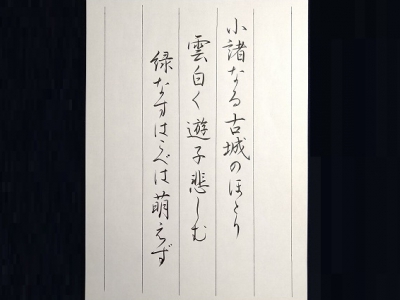 小諸なる古城のほとり
雲白く遊子悲しむ
緑なすはこべは萌えず